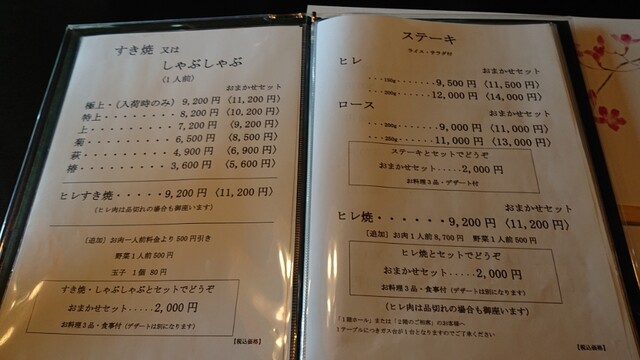 すき焼 又は
しゃぶしゃぶ
(1人前)
おまかせセット
極上・(入荷時のみ) 9,200円〈11,200円〉
特上・・・・・・・・8,200円〈10,200円〉
上・・・・・・・・・7,200円〈9,200円〉
菊・・・・・・・・・6,500円〈8,500円〉
萩・・・・・・・・・4,900円〈6,900円〉
椿・・・・・・・・・3,600円〈5,600円〉
ヒレすき焼・・・・・9,200円〈11,200円〉
(ヒレ肉は品切れの場合も御座います)
〔追加〕お肉一人前料金より500円引き
野菜1人前500円
玉子 1個 80円
すき焼・しゃぶしゃぶとセットでどうぞ
おまかせセット・・・・・2,000円
お料理3品・食事付(デザートは別になります)
【税込価格】
ステーキ
ライス・サラダ付
ヒレ
おまかせセット
・・・150g・・・・・・・9,500円〈11,500円〉
・・・200g・・・・・・・12,000円〈14,000円〉
ロース
おまかせセット
・・・200g・・・・・・・9,000円〈11,000円〉
・・・250g・・・・・・・11,000円〈13,000円〉
ステーキとセットでどうぞ
おまかせセット・・・・・2,000円
お料理3品・デザート付
おまかせセット
ヒレ焼・・・・・・9,200円〈11,200円〉
〔追加〕お肉1人前8,700円 野菜1人前500円
ヒレ焼とセットでどうぞ
おまかせセット・・・・・2,000円
お料理3品・食事付(デザートは別になります)
(ヒレ肉は品切れの場合も御座います)
「1階ホール」または「2階のご相席」のお客様へ
1テーブルにつきガス台が1台となりますのでご了承ください
【税込価格】